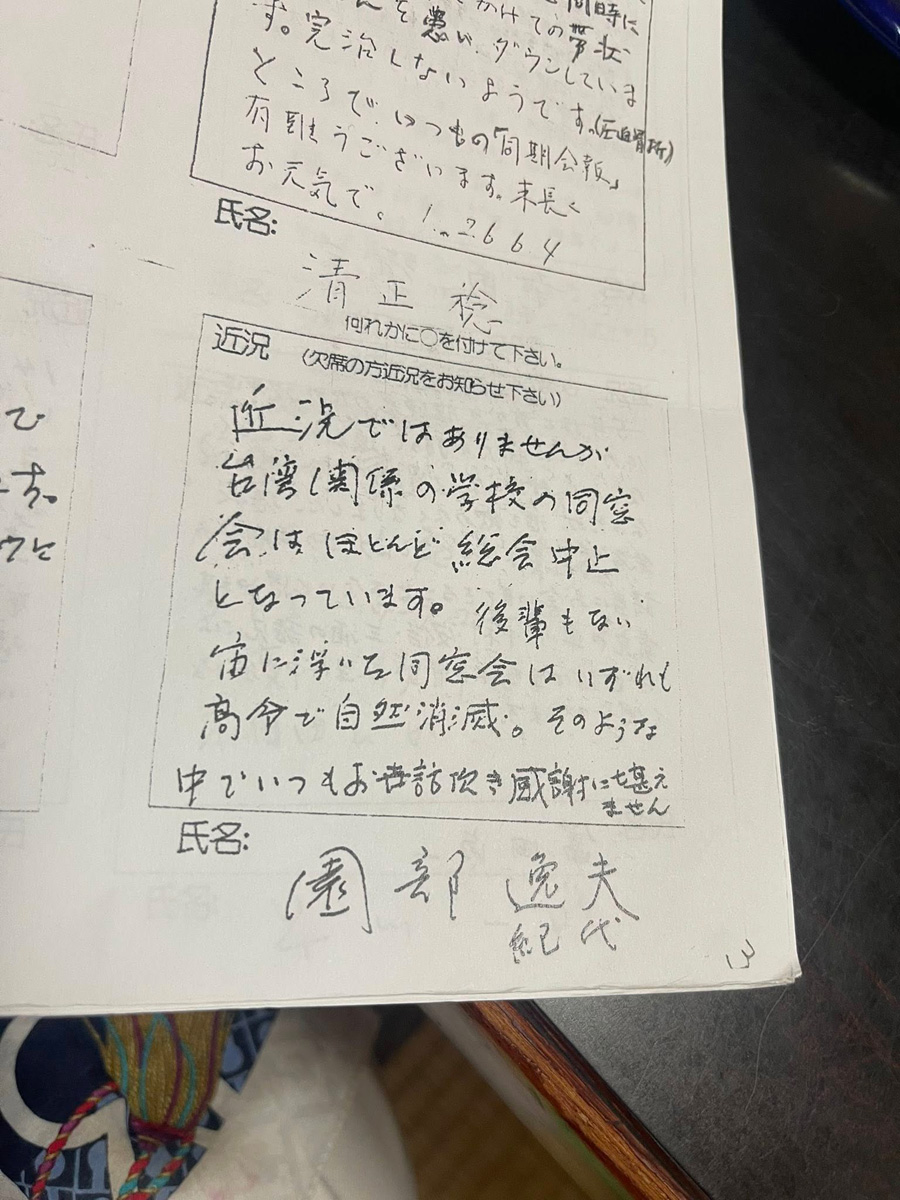 同時に
かけての帯状
んを患い、ダウンしていま
す。完治しないようです。(圧迫骨折)
ところで、いつもの「同期会報」
有難うございます。末長く
お元気で。
氏名:
清 正 稔
何れかに○を付けて下さい。
近況 (欠席の方近況をお知らせ下さい)
近況ではありませんが
台湾関係の学校の同窓
会はほとんど総会中止
となっています。後輩もない
宙に浮いた同窓会はいずれも
高令で自然消滅。そのような
中でいつもお世話頂き感謝に堪え
ません
氏名:
園 部 逸夫
紀代
13
で
す。